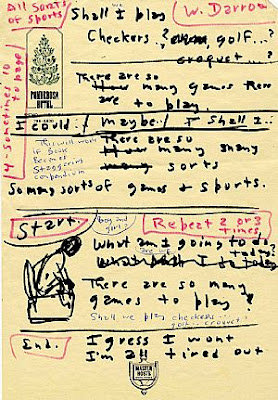 All Sorts of Sports
W. Darrow
we
Shall I play
Checkers..? golf...?
croquet...?
PONDEROSA HOTEL
14 - Sometimes 10 to page
There are so
How many games there
are to play.
I could / Maybe / I shall I..
This will work if Book Becomes Staggering compendium
There are so
How many many
many sorts
So many sorts of games & sports.
Start..
boy and girl?
Repeat 2 or 3 times
What am I going to do
are we
today?
What shall I do today
There are so many
games to play
Shall we play checkers..
golf.. croquet..
End.
I guess I wont
I'm all tired out
MASTER HOSTS